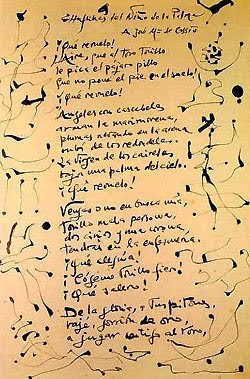 Chuflillas del Niño de la Palma
A José Mª de Cossío
¡Qué revuelo!
¡Aire, que al toro torillo
le pica el pájaro pillo
que no pone el pie en el suelo!
¡Qué revuelo!
Ángeles con cascabeles
arman la marimorena,
plumas nevando en la arena
rubí de los redondeles.
La Virgen de los caireles
baja una palma del cielo.
¡Qué revuelo!
Vengas o no en busca mía,
torillo mala persona,
dos cirios y una corona
tendrás en la enfermería.
¡Qué alegría!
¡Cógeme torillo fiero!
¡Qué salero!
De la gloria, a tus pitones,
bajé, gorrión de oro,
a jugar contigo al toro,